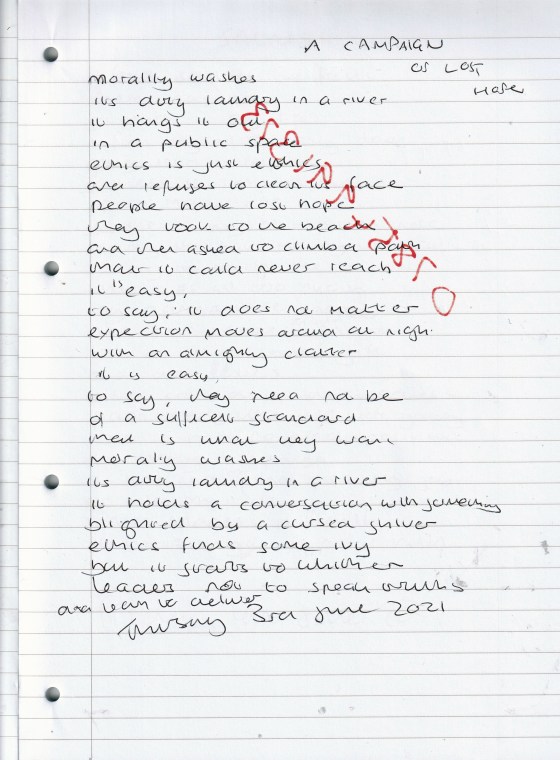 A CAMPAIGN
OF LOST
HOPE
morality washes
its dirty laundry in a river
it hangs it out
in a public space
ethics is just ethics
and refuses to clean its face
people have lost hope
they took to the beach
and then asked to climb a path
that it could never reach
it is easy,
to say, it does not matter
expection moves around at night
with an almighty clatter
it is easy,
to say, they need not be
of a sufficent standard
that is what they want
morality washes
its dirty laundry in a river
it holds a conversation with something
blighted by a cursed shiver
ethics finds some ivy
but it starts to whither
leaders not to speak truths
and learn to deliver
Thursday 3rd June 2021